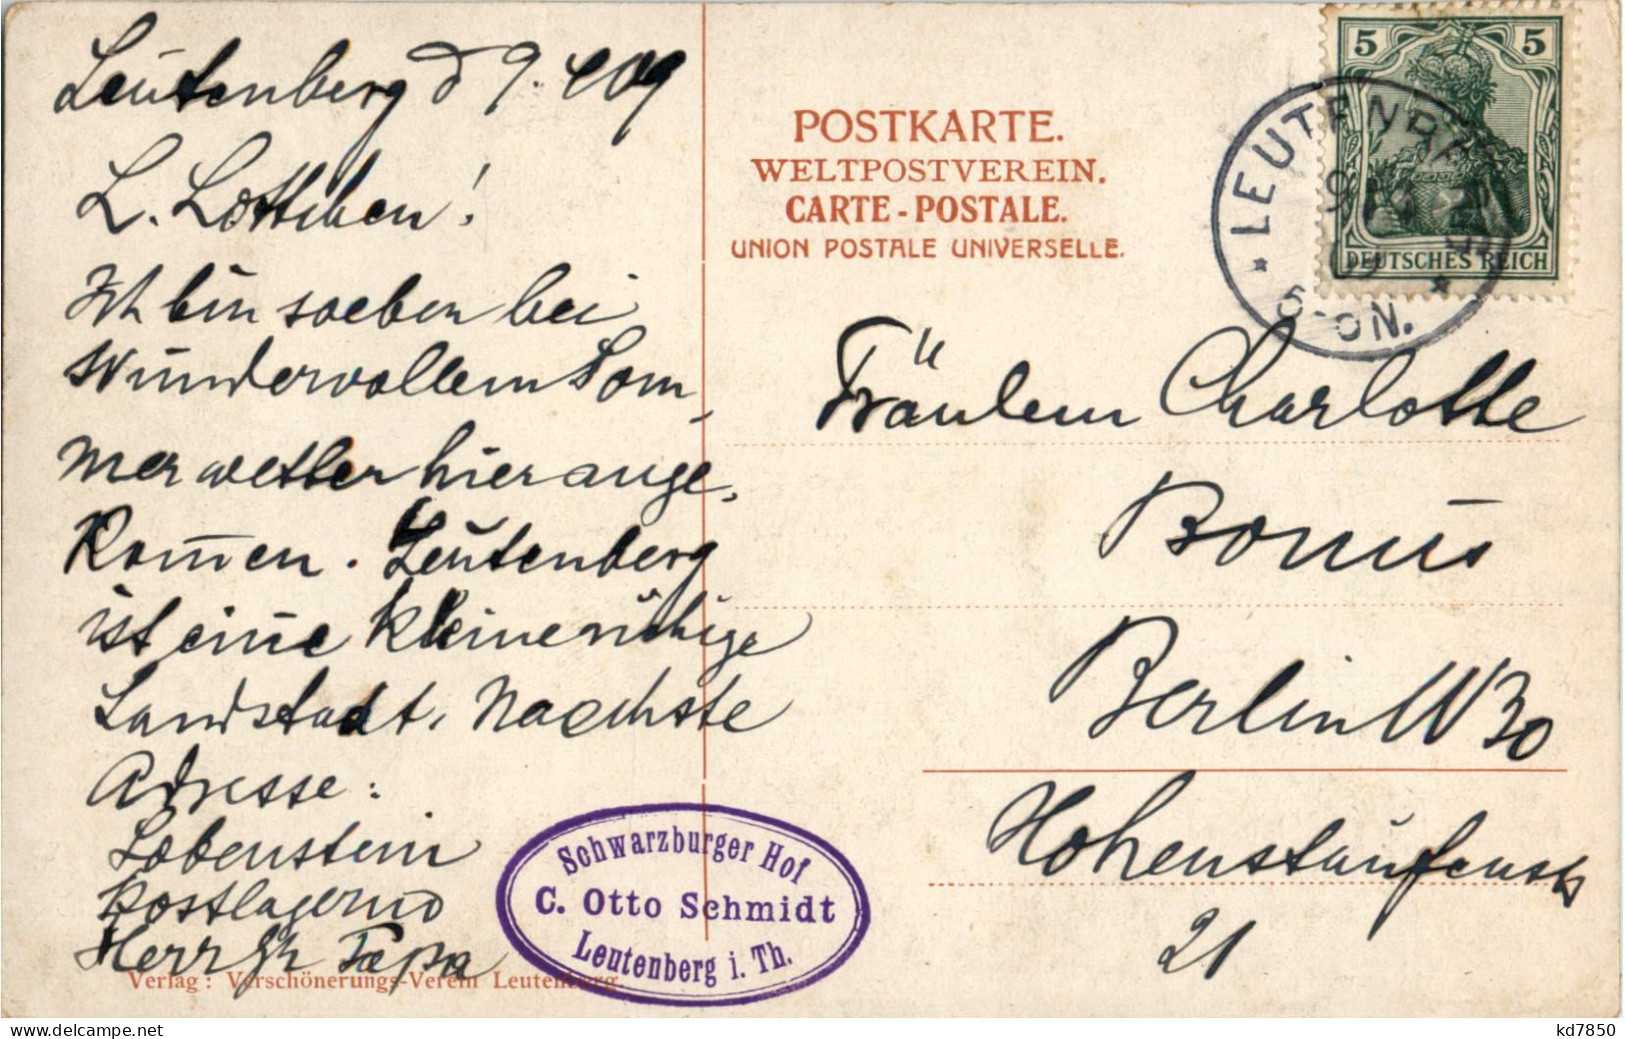 Leutenberg d 9. 1909
L. Lottchen!
Ich bin soeben bei
wundervollem Som-
merwetter hier ange-
kom̄en. Leutenberg
ist eine kleine ruhige
Landstadt. Nächste
Adresse:
Lobenstein
Postlagernd
Herr Fr
Verlag: Verschönerungs-Verein Leutenberg.
Schwarzburger Hof
C. Otto Schmidt
Leutenberg i. Th.
POSTKARTE.
WELTPOSTVEREIN.
CARTE-POSTALE.
UNION POSTALE UNIVERSELLE.
5 5
DEUTSCHES REICH
LEUTENBERG
9
09
5-6N.
Fräulein Charlotte
Bonus
Berlin W 30
Hohenstaufenstr
21
delcampe.net
kd7850